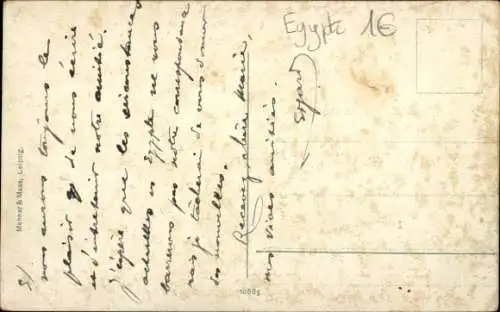 5/
nous aurons toujours le
plaisir de vous écrire
et d'entretenir notre amitié.
J'espère que les circonstances
actuelles en Egypte ne vous
pas notre correspondance
je tâcherai de vous donner
des nouvelles.
Recevez, chère Marie,
nos vives amitiés.
Egypte 1€
Mehner & Maas, Leipzig.